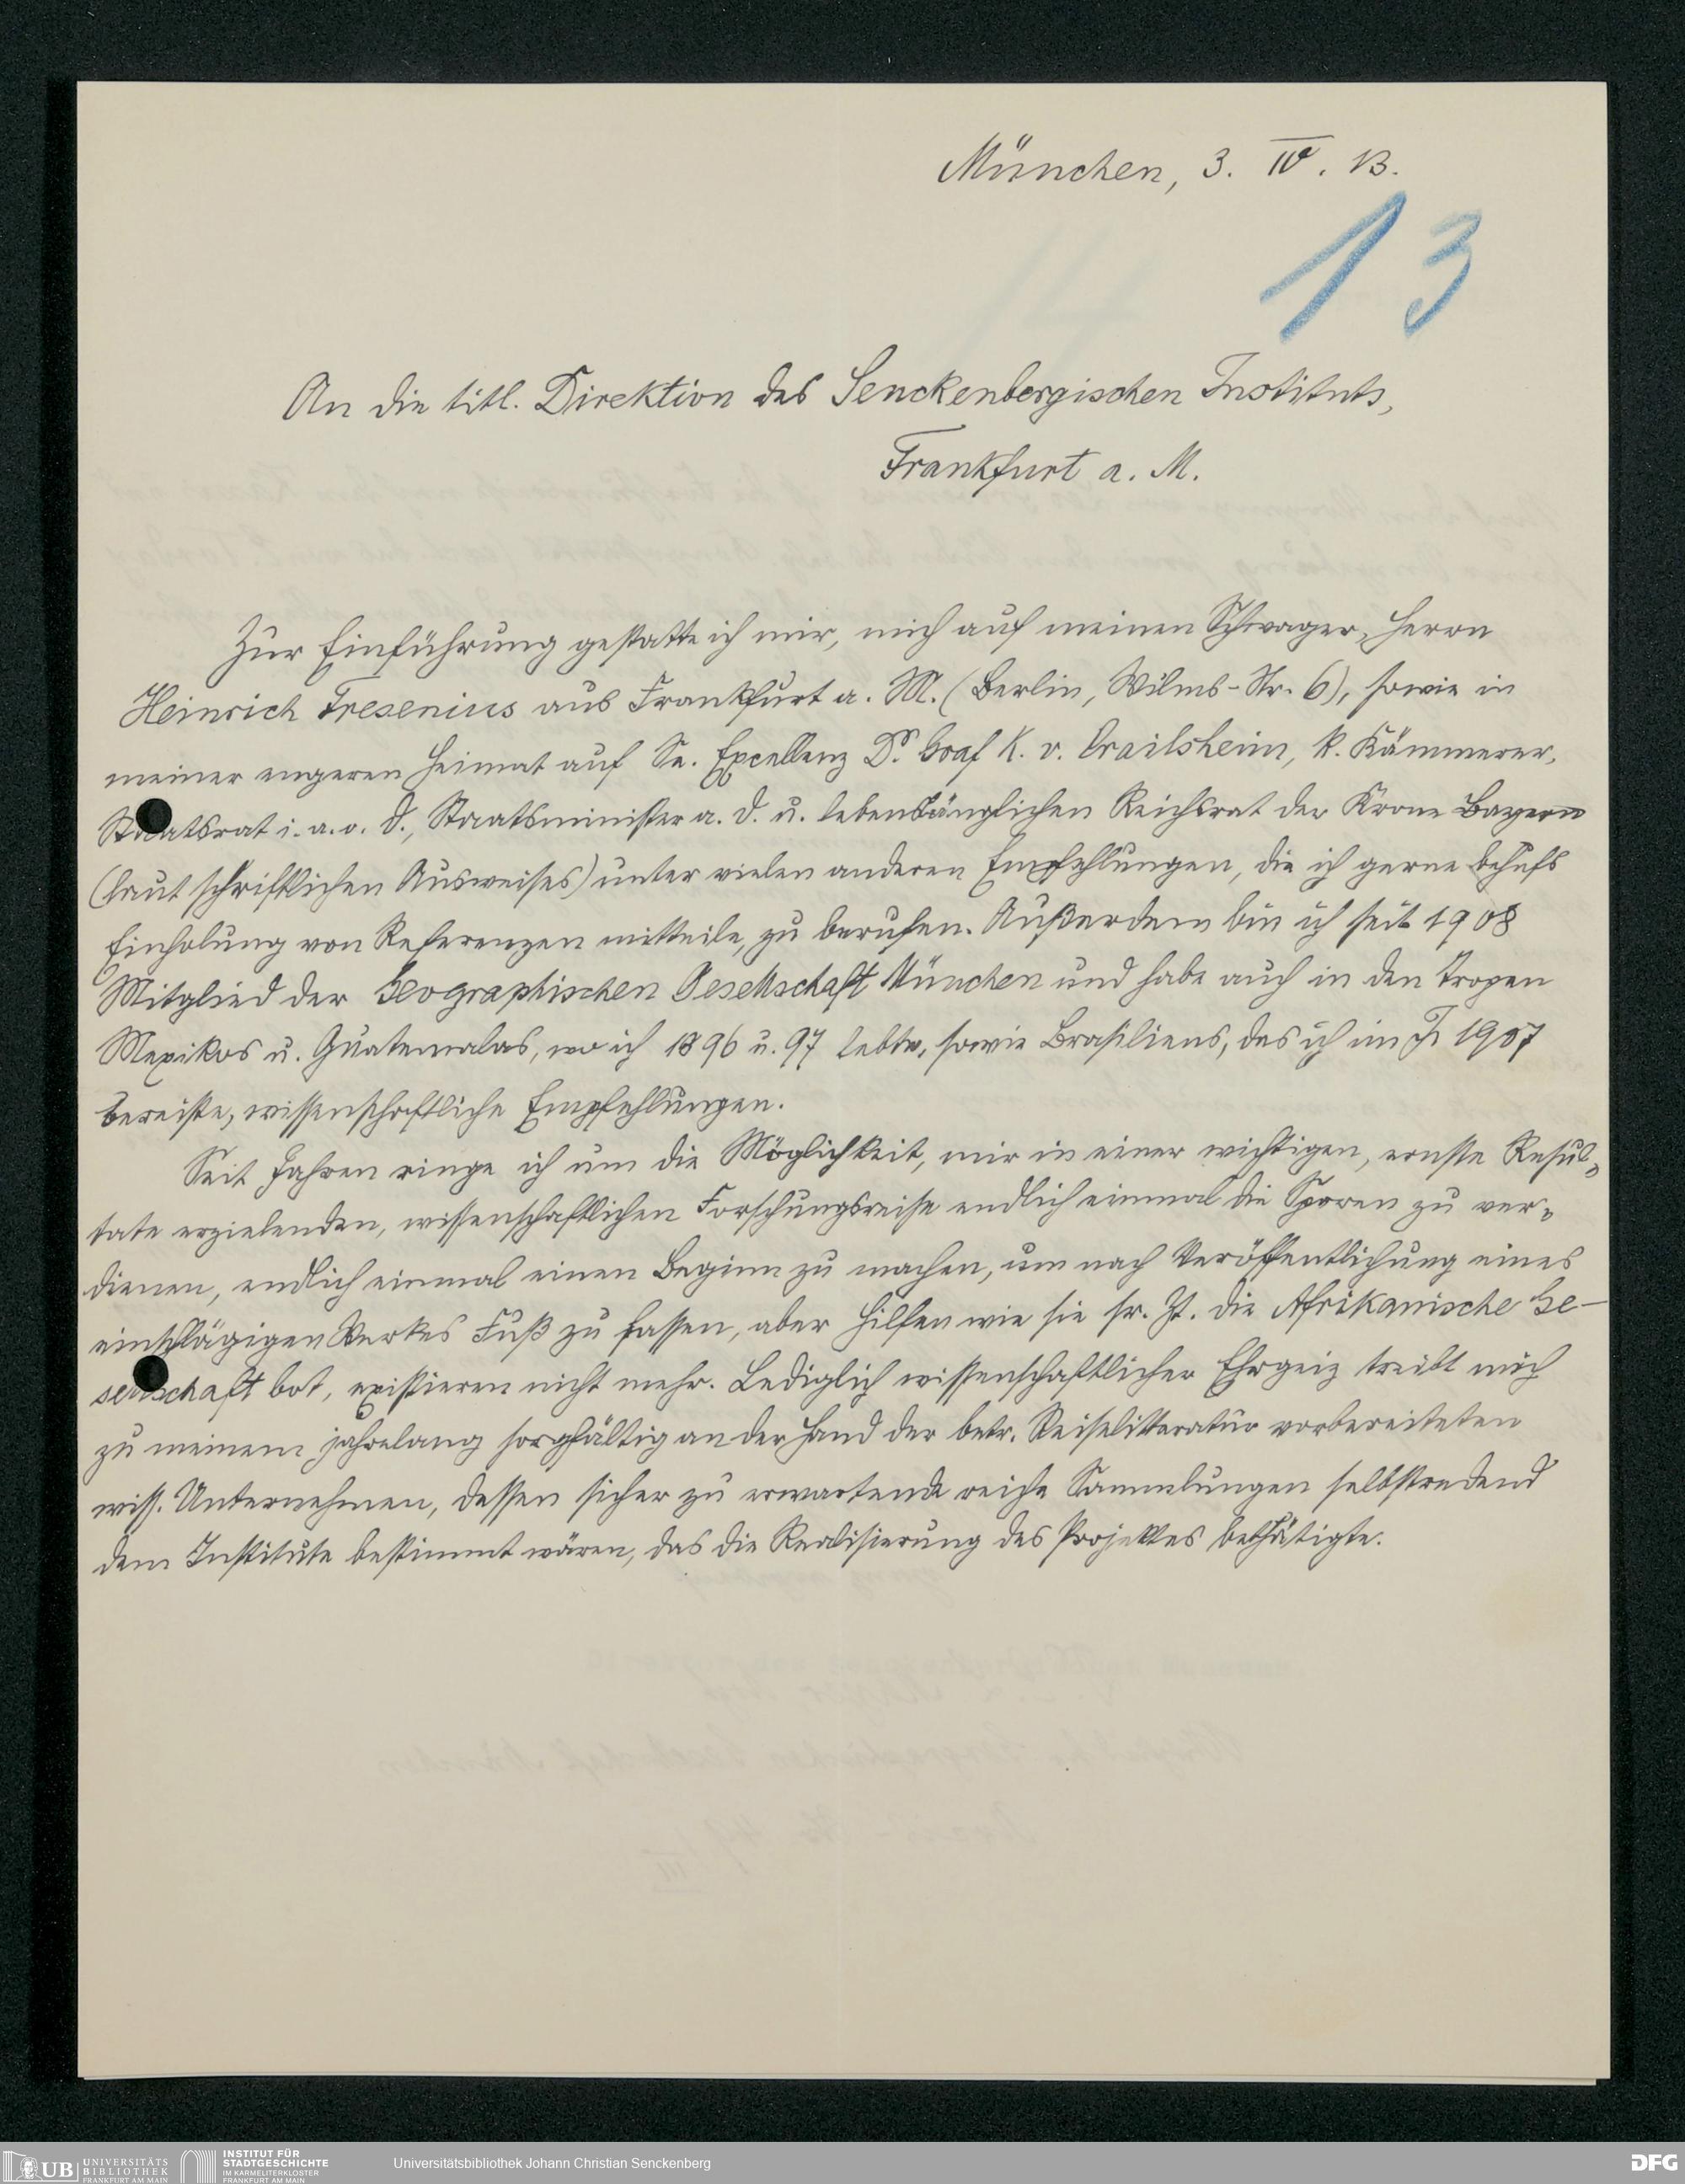 München, 3. IV. 13.
13
An die titl. Direktion des Senckenbergischen Instituts,
Frankfurt a. M.
Zur Einführung gestatte ich mir, mich auf meinen Schwager, Herrn
Heinrich Fresenius aus Frankfurt a. M. (Berlin, Wilms-Str. 6), sowie in
meiner engeren Heimat auf Se. Excellenz Dr. Graf K. v. Crailsheim, k. Kämmerer,
Staatsrat i. a. o. D., Staatsminister a. D. u. lebenslänglichen Reichsrat der Krone Bayern
(laut schriftlichen Ausweises) unter vielen anderen Empfehlungen, die ich gerne behufs
Einholung von Referenzen mitteile, zu berufen. Außerdem bin ich seit 1908
Mitglied der Geographischen Gesellschaft München und habe auch in den Tropen
Mexikos u. Guatemalas, wo ich 1896 u. 97 lebte, sowie Brasiliens, das ich im J. 1907
bereiste, wissenschaftliche Empfehlungen.
Seit Jahren ringe ich um die Möglichkeit, mir in einer wichtigen, ernste Resul-
tate erzielenden, wissenschaftlichen Forschungsreise endlich einmal die Sporen zu ver-
dienen, endlich einmal einen Beginn zu machen, um nach Veröffentlichung eines
einschlägigen Werkes Fuß zu fassen, aber Hilfen wie sie sr. Zt. die Afrikanische Ge-
sellschaft bot, existieren nicht mehr. Lediglich wissenschaftlicher Ehrgeiz treibt mich
zu meinem jahrelang sorgfältig an der Hand der betr. Reiselitteratur vorbereiteten
wiss. Unternehmen, dessen sicher zu erwartende reiche Sammlungen selbstredend
dem Institute bestimmt wären, das die Realisierung des Projektes bethätigte.
UB UNIVERSITÄTS BIBLIOTHEK FRANKFURT AM MAIN
INSTITUT FÜR STADTGESCHICHTE IM KARMELITERKLOSTER FRANKFURT AM MAIN
Universitätsbibliothek Johann Christian Senckenberg
DFG